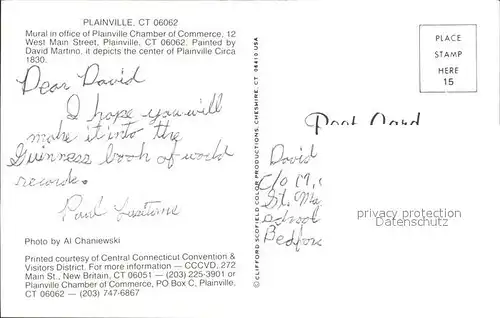 PLAINVILLE, CT 06062
Mural in office of Plainville Chamber of Commerce, 12
West Main Street, Plainville, CT 06062. Painted by
David Martino, it depicts the center of Plainville Circa
1830.
Dear David
I hope you will
make it into the
Guinness book of world
records.
Paul
Photo by Al Chaniewski
Printed courtesy of Central Connecticut Convention &
Visitors District. For more information — CCCVD, 272
Main St., New Britain, CT 06051 — (203) 225-3901 or
Plainville Chamber of Commerce, PO Box C, Plainville,
CT 06062 — (203) 747-6867
© CLIFFORD SCOFIELD COLOR PRODUCTIONS, CHESHIRE, CT 06410 USA
PLACE
STAMP
HERE
15
Post Card
David
C/o M.
St. Ma
school
Bedford
privacy protection
DARABANTH